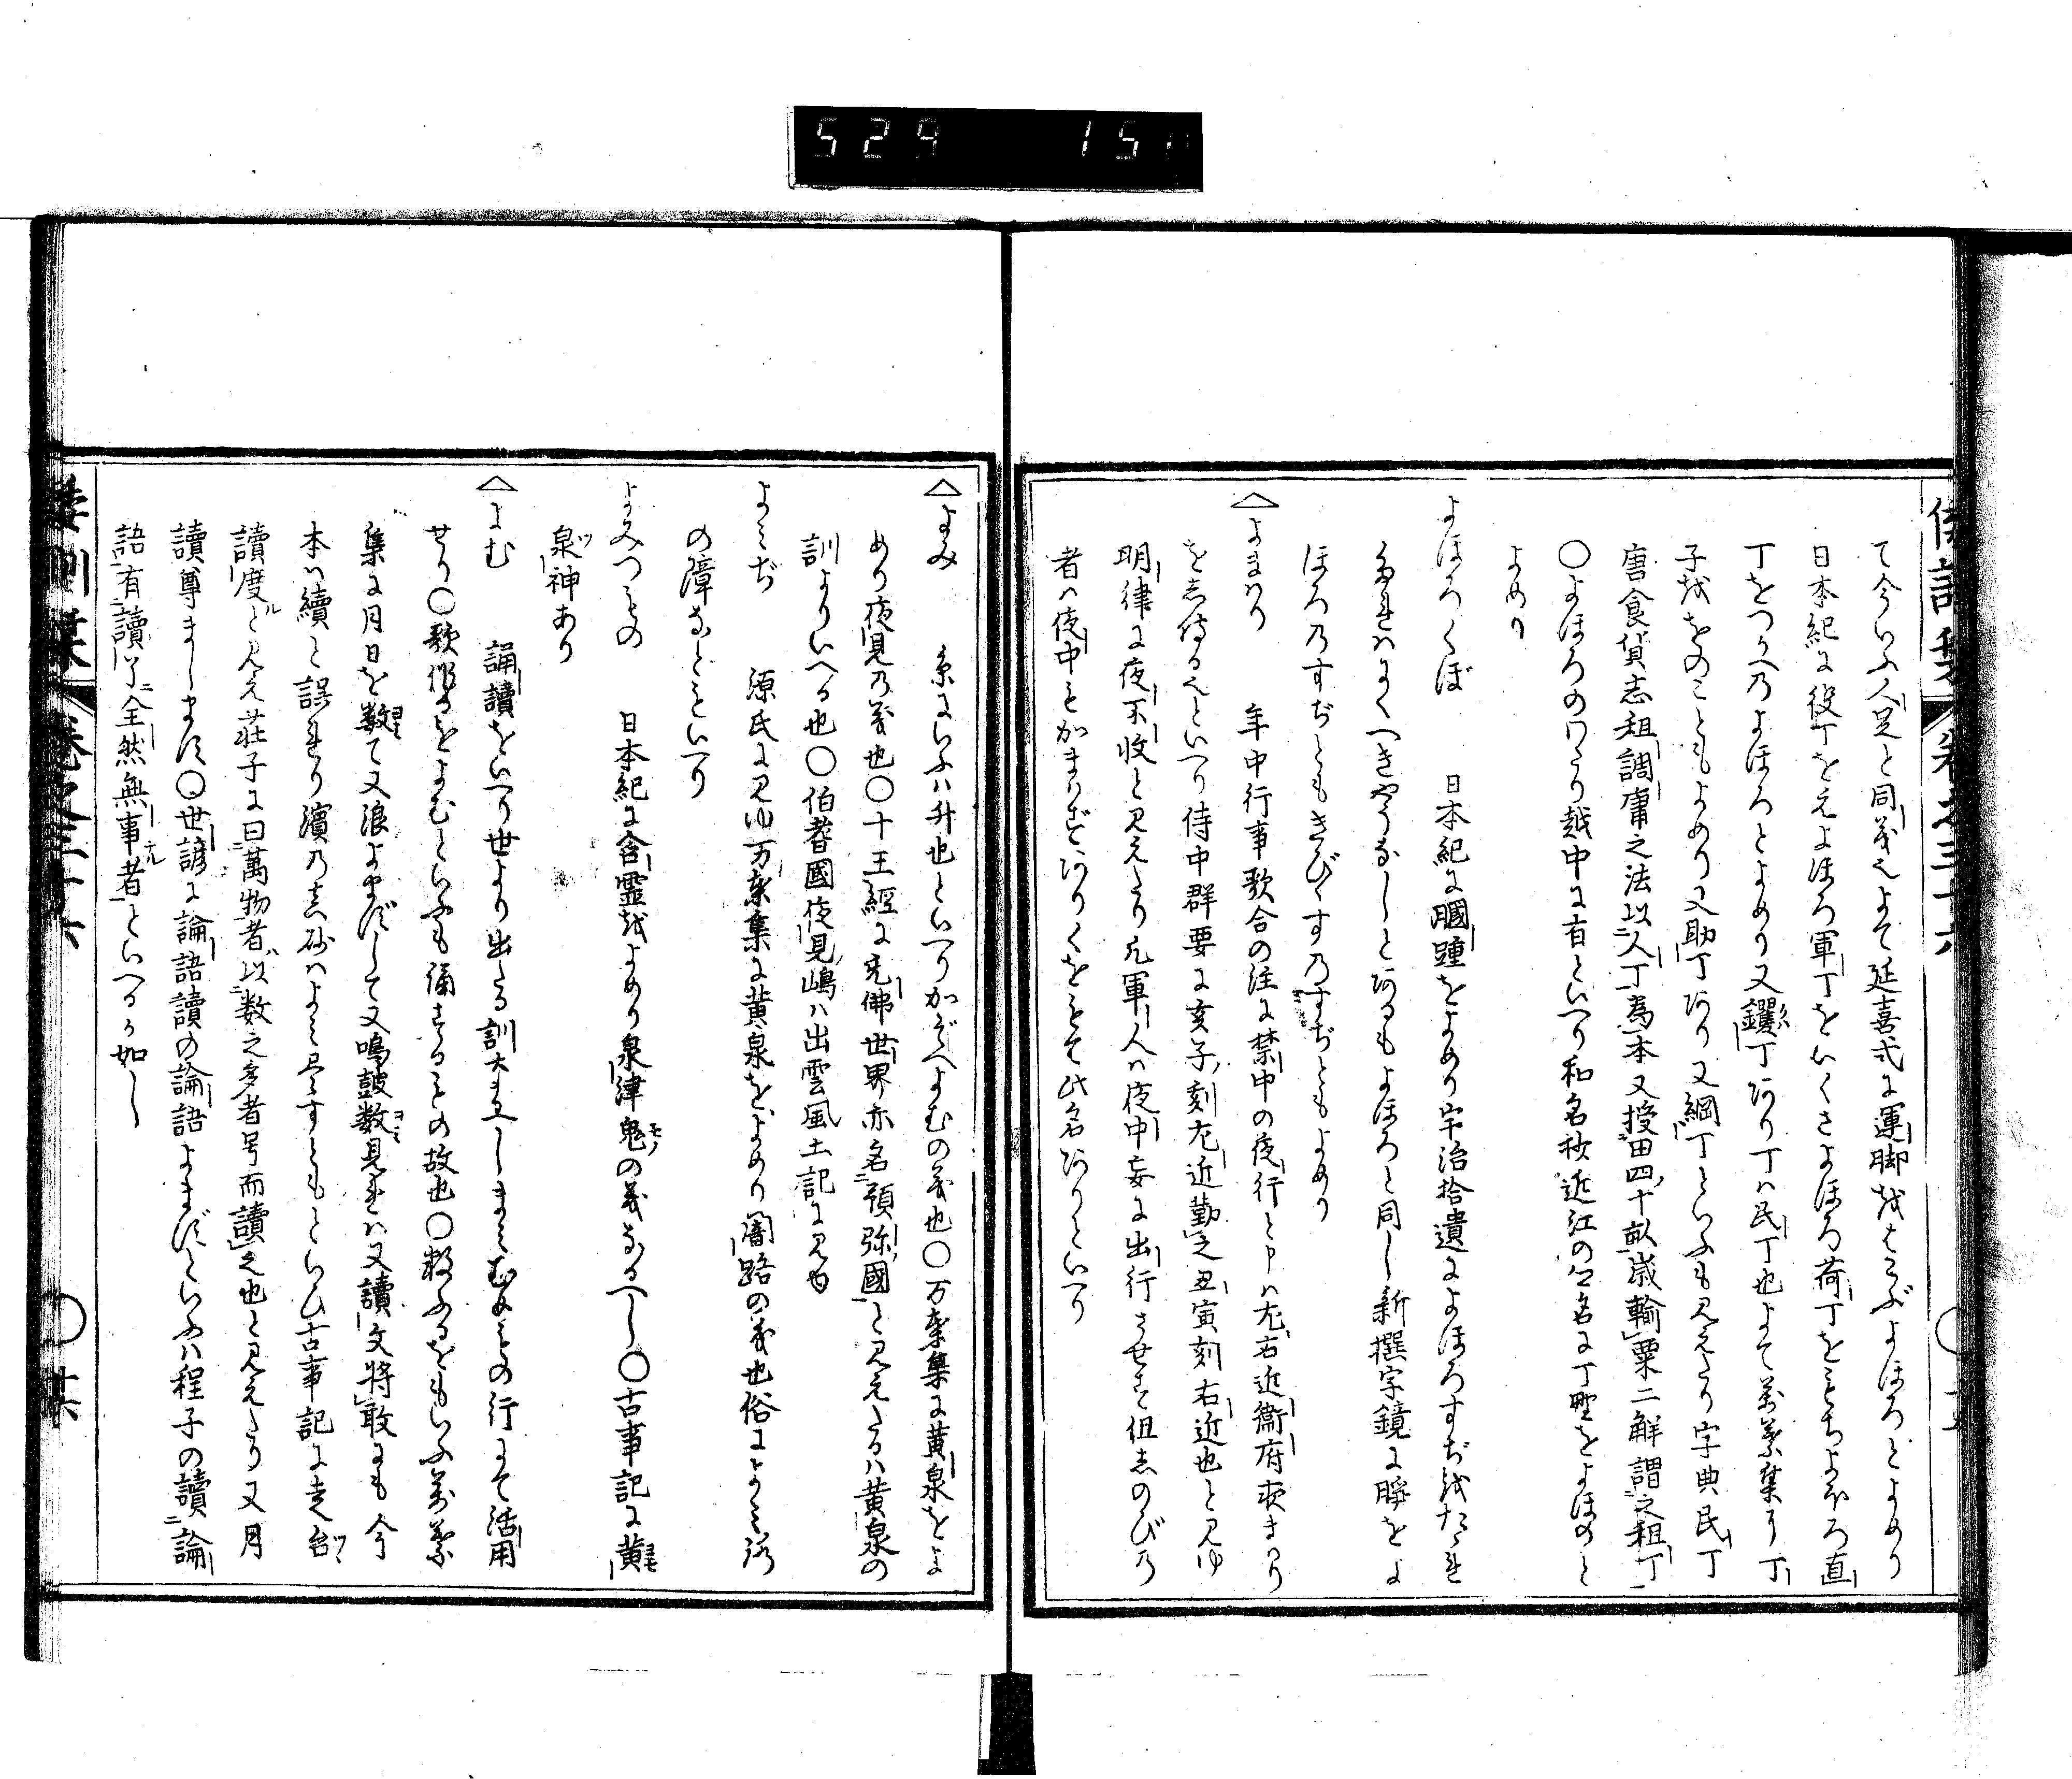 529 151
倭訓栞 卷之三十六
て今いふ人足と同義也よて延喜式に運脚をもはこぶよほろとよめり
日本紀に役丁をえよほろ軍丁をいくさよほろ荷丁をもちよほろ直
丁をつかへのよほろとよめり又钁丁あり丁ハ民丁也よて萬葉集に丁
子をよのこともよめり又助丁あり又綱丁といふも見えたり字典民丁
唐食貨志租調庸之法以人丁為本又授田四十畝歳輸粟二斛謂之租丁
〇よほろのわたり越中に有といへり和名抄近江の郷名に丁野をよほのと
よめり
よほろくぼ 日本紀に膕踵をよめり宇治拾遺によほろすぢをたゝれ
たれハにくへきやうなしとあるもよほろと同し新撰字鏡に𦝫をよ
ほろのすぢともきびくすのすぢともよめり
△よまはり 年中行事歌合の注に禁中の夜行と申ハ左右近衞府夜まはり
をし侍る也といへり侍中群要に亥子刻左近勤之丑寅刻右近也と見ゆ
明律に夜不收と見えたり凡軍人ハ夜中妄に出行させず但しのびの
者ハ夜中もかまはずありくをもて此名ありといへり
△よみ 糸にいふハ升也といへりかぞへよむの義也〇万葉集に黄泉をよ
めり夜見の義也〇十王經に亮佛世界亦名預弥國と見えたるハ黄泉の
訓よりいへる也〇伯耆國夜見嶋ハ出雲風土記に見ゆ
よみぢ 源氏に見ゆ万葉集に黄泉をよめり闇路の義也俗によみぢ
の障なともいへり
よみつもの 日本紀に含靈をよめり泉津鬼の義なるへし〇古事記に黄
泉神あり
△よむ 誦讀をいへり世より出たる訓大まへしまみむめもの行にて活用
せり〇歌作るをよむといふも誦するもの故也〇数ふるをもいふ萬葉
集に月日を数て又浪よまずして又鳴鼓数見れハ又讀文将敢にも今
本ハ續と誤れり濱の真砂ハよみ尽すともといひ古事記に走台
讀度と見え莊子に曰萬物者以数之多者号而讀之也と見えたり又月
讀尊まします〇世諺に論語讀の論語よまずといふハ程子の讀論
語有讀了全然無事者といへるか如し
倭訓栞 卷之三十六 〇 共